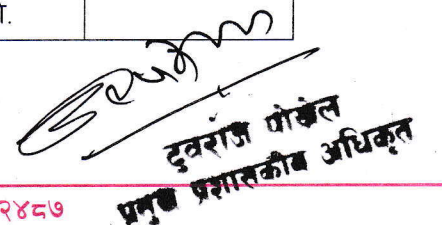 त.
दुवराज पोखेल
प्रमुख प्रशासकीय अधिकृत
२४८७